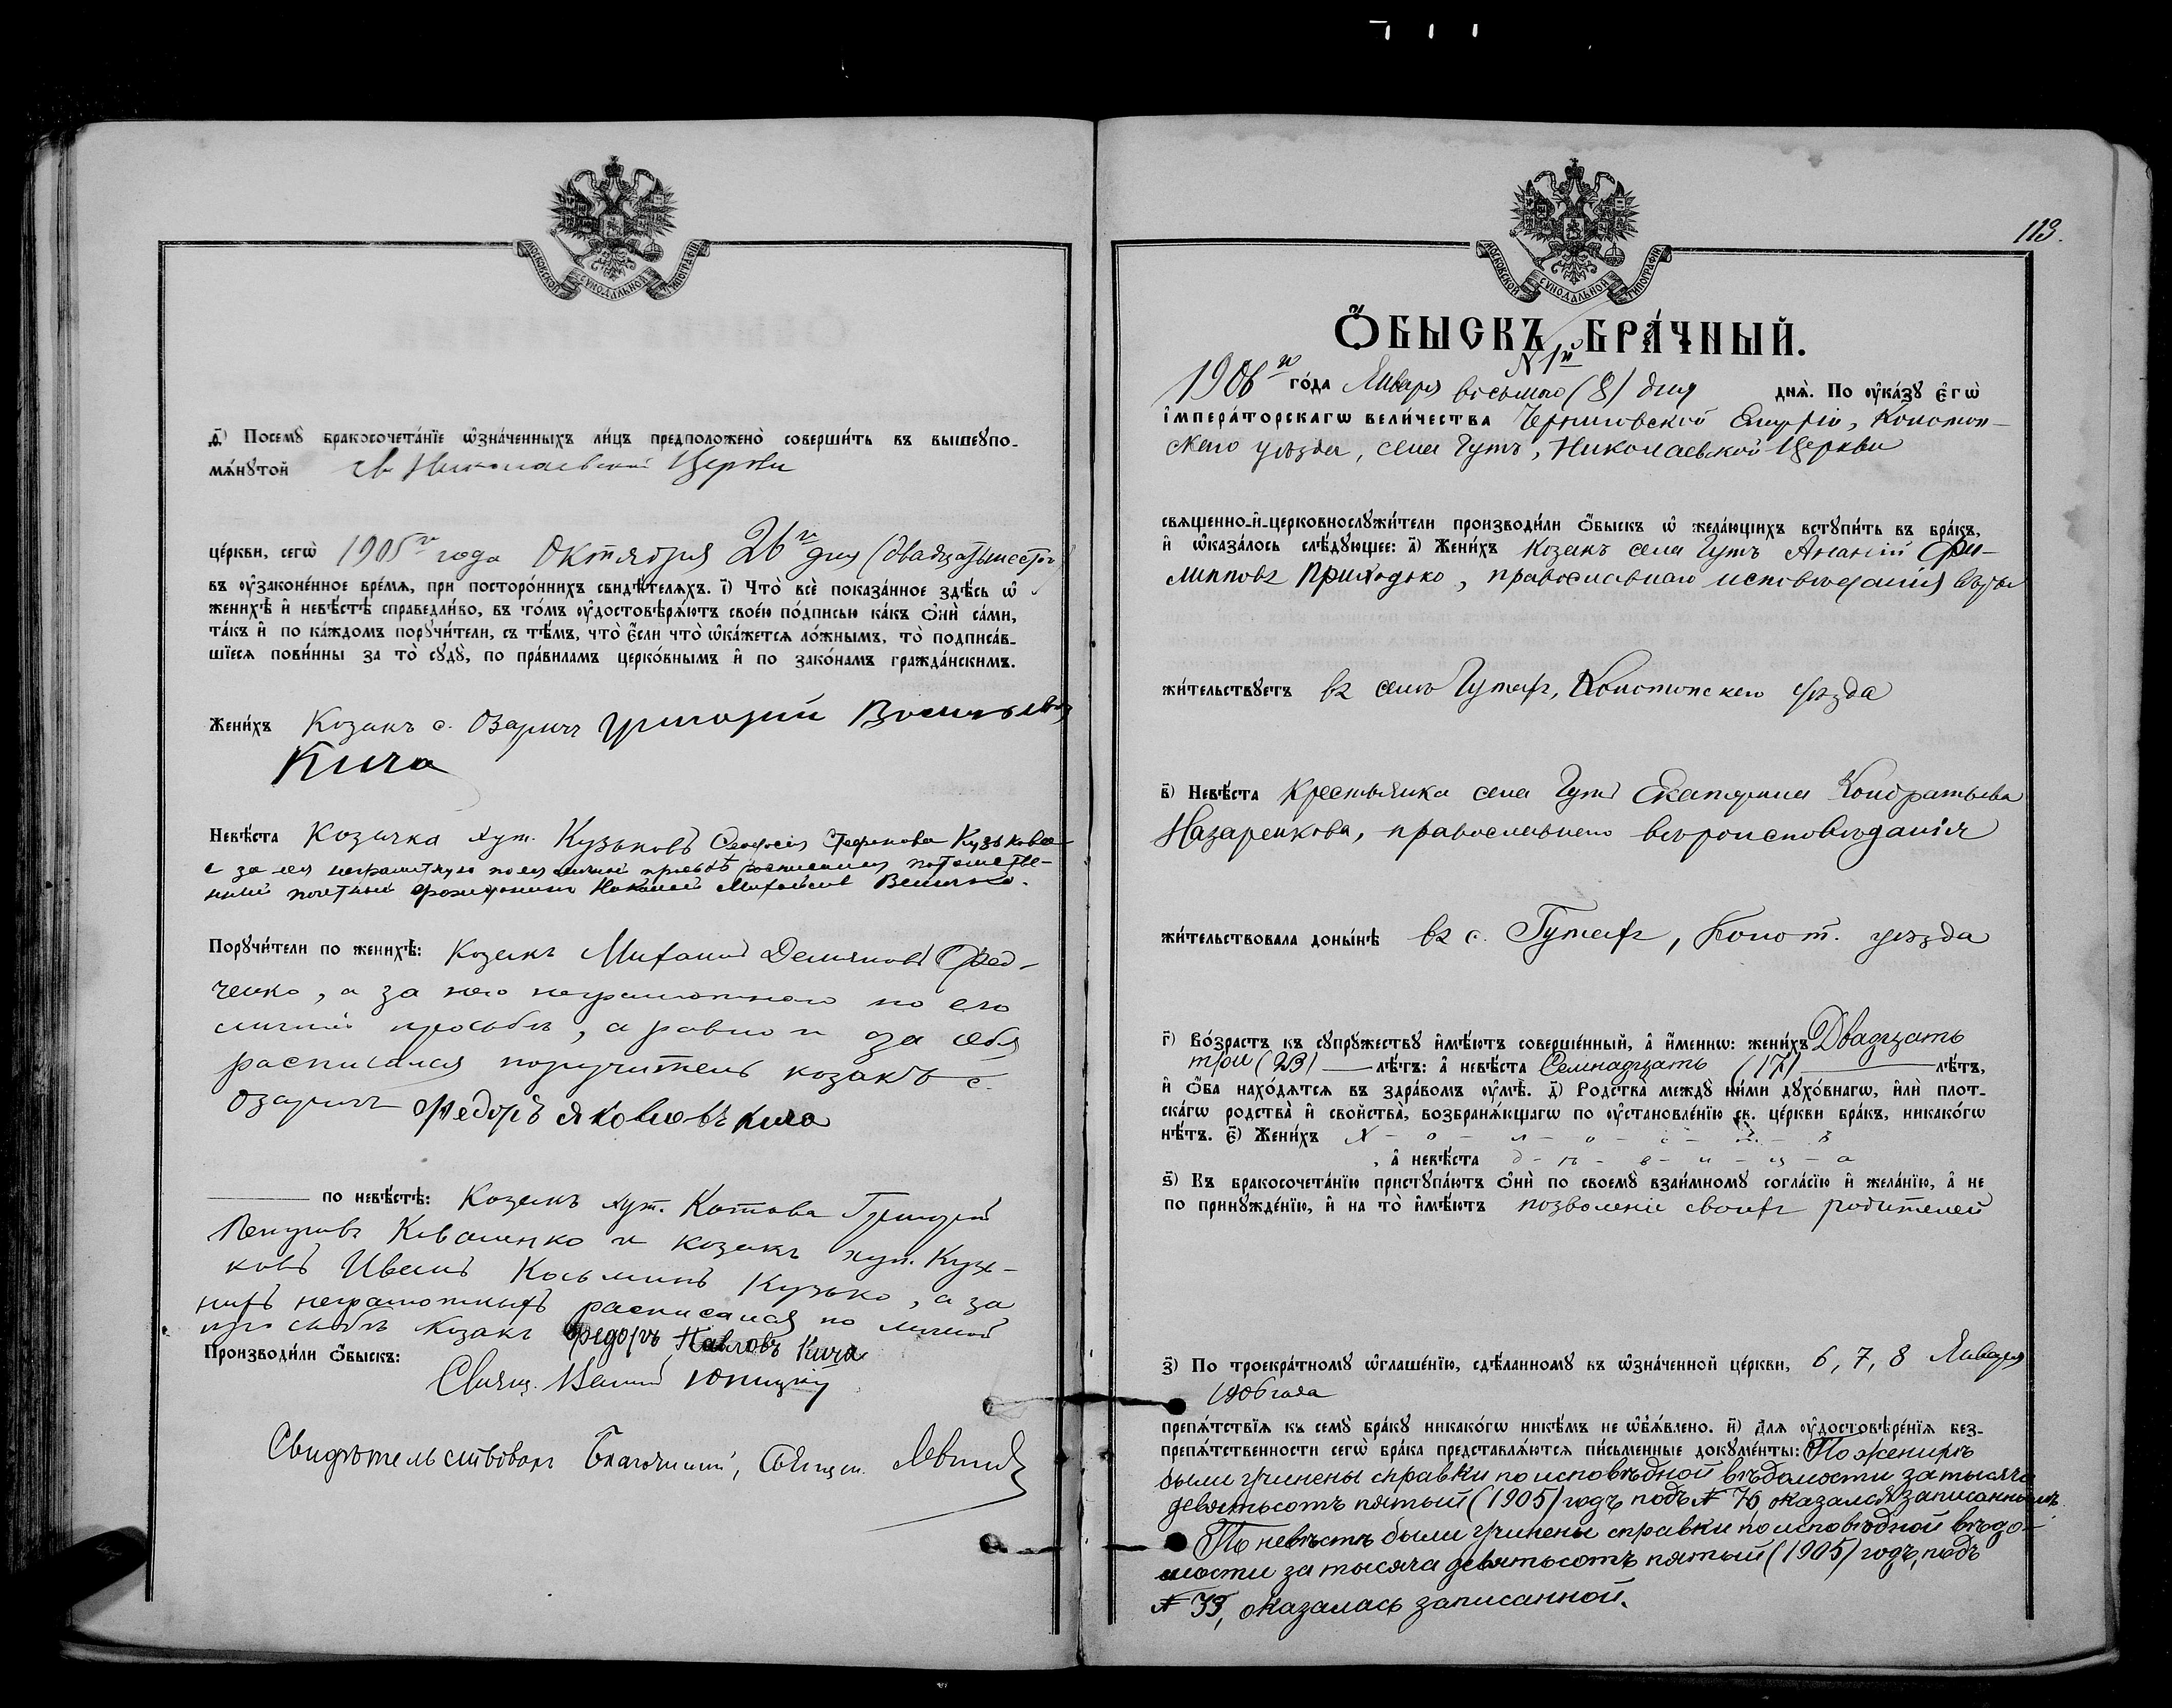 МОСКОВСКОЙ СѴНОДАЛЬНОЙ ТИПОГРАФІИ
д҃) Посемꙋ̀ бракосочета́нїе ѡ҆зна́ченныхъ ли́цъ предположено̀ соверши́ть въ вышеꙋпо-
мѧ́нꙋтой св. Николаевской Церкви
це́ркви, сегѡ̀ 1905го года Октября 26го дня (двадцатьшестого
въ ᲂу҆зако́ненное вре́мѧ, при посторо́ннихъ свидѣ́телѧхъ. і҃) Что̀ всѐ показа́нное здѣ́сь ѡ҆
женихѣ̀ и҆ невѣ́стѣ справедли́во, въ то́мъ ᲂу҆достовѣрѧ́ютъ свое́ю по́дписью ка́къ ѻ҆нѝ са́ми,
та́къ и҆ по ка́ждомъ порꙋчи́тели, съ тѣ́мъ, что̀ є҆́сли что̀ ѡ҆ка́жетсѧ ло́жнымъ, то̀ подписа́в-
шїесѧ пови́нны за то̀ сꙋдꙋ̀, по пра́виламъ церко́внымъ и҆ по зако́намъ гражда́нскимъ.
Жени́хъ Козакъ с. Озаричъ Григорій Васильевъ
Кича
Невѣ́ста Козачка хут. Кузьковъ Стефанова Кузькова
а за нея неграмотную по ея личной просьбѣ росписался потомстве-
нный почетный Николай Михайловъ Величко.
Порꙋчи́тели по женихѣ̀: Козакъ Михаилъ Демьяновъ Фед-
ченко, а за него неграмотного по его
личной просьбѣ, а равно и за себя
расписался поручитель козакъ с.
Озаричъ Федоръ Яковлевъ Кича
по невѣ́стѣ: Козакъ хут. Котова Григорій
Коваленко и козакъ хут. Кузь-
ковъ Иванъ Косьминъ Кузько, а за
нихъ неграмотныхъ расписался по личной
просьбѣ козакъ Федоръ Павловъ Кича
Производи́ли ѻ҆́быскъ:
Свящ.
Свидѣтельствовалъ Благочинный, Священ.
113.
МОСКОВСКОЙ СѴНОДАЛЬНОЙ ТИПОГРАФІИ
Ѻ҆́БЫСКЪ БРА́ЧНЫЙ.
N 1й
1906го го́да Января восьмого (8) дня днѧ̀. По ᲂу҆ка́зꙋ є҆гѡ̀
і҆мпера́торскагѡ вели́чества Черниговской Епархіи, Конотоп-
скаго уѣзда, села Гутъ, Николаевской Церкви
свѧщенно-и҆-церковнослꙋжи́тели производи́ли ѻ҆́быскъ ѡ҆ жела́ющихъ встꙋпи́ть въ бра́къ,
и҆ ѡ҆каза́лось слѣ́дꙋющее: а҃) Жени́хъ Козакъ села Гутъ Ананій Фи-
липповъ Приходько, православнаго исповѣданія вѣры
жи́тельствꙋетъ въ селѣ Гутахъ, Конотопскаго уѣзда
в҃) Невѣ́ста Крестьянка села Гутъ Екатерина Кондратьева
Назаренкова, православнаго вѣроисповѣданія
жи́тельствовала доны́нѣ въ с. Гутахъ, Конот. уѣзда
г҃) Во́зрастъ къ сꙋпрꙋ́жествꙋ и҆мѣ́ютъ соверше́нный, а҆ и҆́меннѡ: жени́хъ Двадцать
три (23) лѣ́тъ: а҆ невѣ́ста Семнадцать (17) лѣ́тъ,
и҆ ѻ҆́ба нахо́дѧтсѧ въ здра́вомъ ᲂу҆мѣ̀. д҃) Родства̀ междꙋ̀ ни́ми дꙋхо́внагѡ, и҆лѝ плот-
ска́гѡ родства̀ и҆ свойства̀, возбранѧ́ющагѡ по ᲂу҆становле́нїю св. це́ркви бра́къ, никако́гѡ
нѣ́тъ. є҃) Жени́хъ х - о - л - о - с - т - ъ
, а҆ невѣ́ста д - ѣ - в - и - ц - а
ѕ҃) Къ бракосочета́нїю пристꙋпа́ютъ ѻ҆нѝ по своемꙋ̀ взаи́мномꙋ согла́сїю и҆ жела́нїю, а҆ не
по принꙋжде́нїю, и҆ на то̀ и҆мѣ́ютъ позволеніе своихъ родителей
з҃) По троекра́тномꙋ ѡ҆глаше́нїю, сдѣ́ланномꙋ въ ѡ҆зна́ченной це́ркви, 6, 7, 8 Января
1906 года
препѧ́тствїѧ къ семꙋ̀ бра́кꙋ никако́гѡ никѣ́мъ не ѡ҆б̾ѧ́влено. и҃) Длѧ ᲂу҆достовѣре́нїѧ без-
препѧ́тственности сегѡ̀ бра́ка представлѧ́ютсѧ пи́сьменные докꙋме́нты: По женихѣ
были учинены справки по исповѣдной вѣдомости за тысяча
девятьсотъ пятый (1905) годъ подъ № 76, оказался записаннымъ.
По невѣстѣ были учинены справки по исповѣдной вѣдо-
мости за тысяча девятьсотъ пятый (1905) годъ, подъ
№ 33, оказалась записанной.